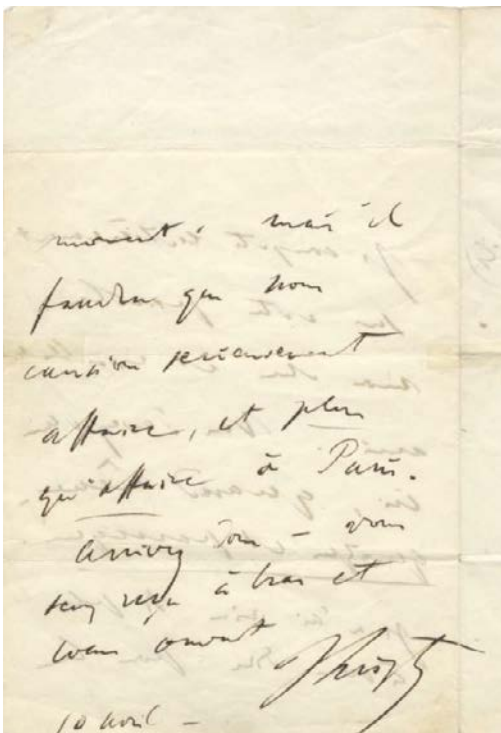 moment, mais il
faudra que nous
causions sérieusement
affaire, et plus
qu'affaire à Paris.
Arrivez donc - vous
serez reçu à bras et
cœur ouvert
10 avril -